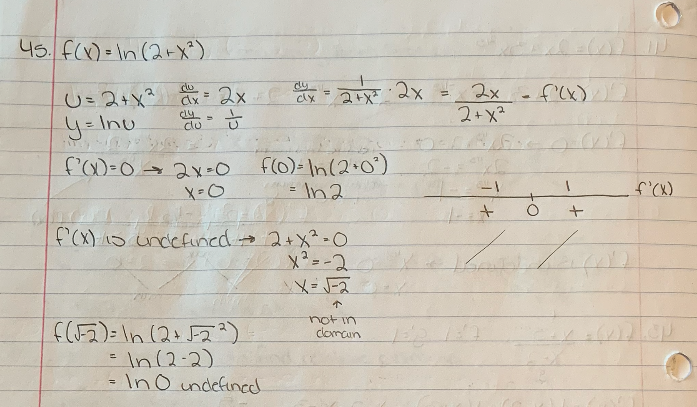 45. f(x) = ln(2+x²)
u = 2+x² du/dx = 2x dy/dx = 1/(2+x²) · 2x = 2x/(2+x²) = f'(x)
y = lnu dy/du = 1/u
f'(x)=0 → 2x=0 f(0)=ln(2+0²)
x=0 = ln2
-1 1 f'(x)
+ 0 +
f'(x) is undefined → 2+x²=0
x²=-2
x=√-2
↑
not in
domain
f(√-2)=ln(2+√-2²)
= ln(2-2)
= ln0 undefined